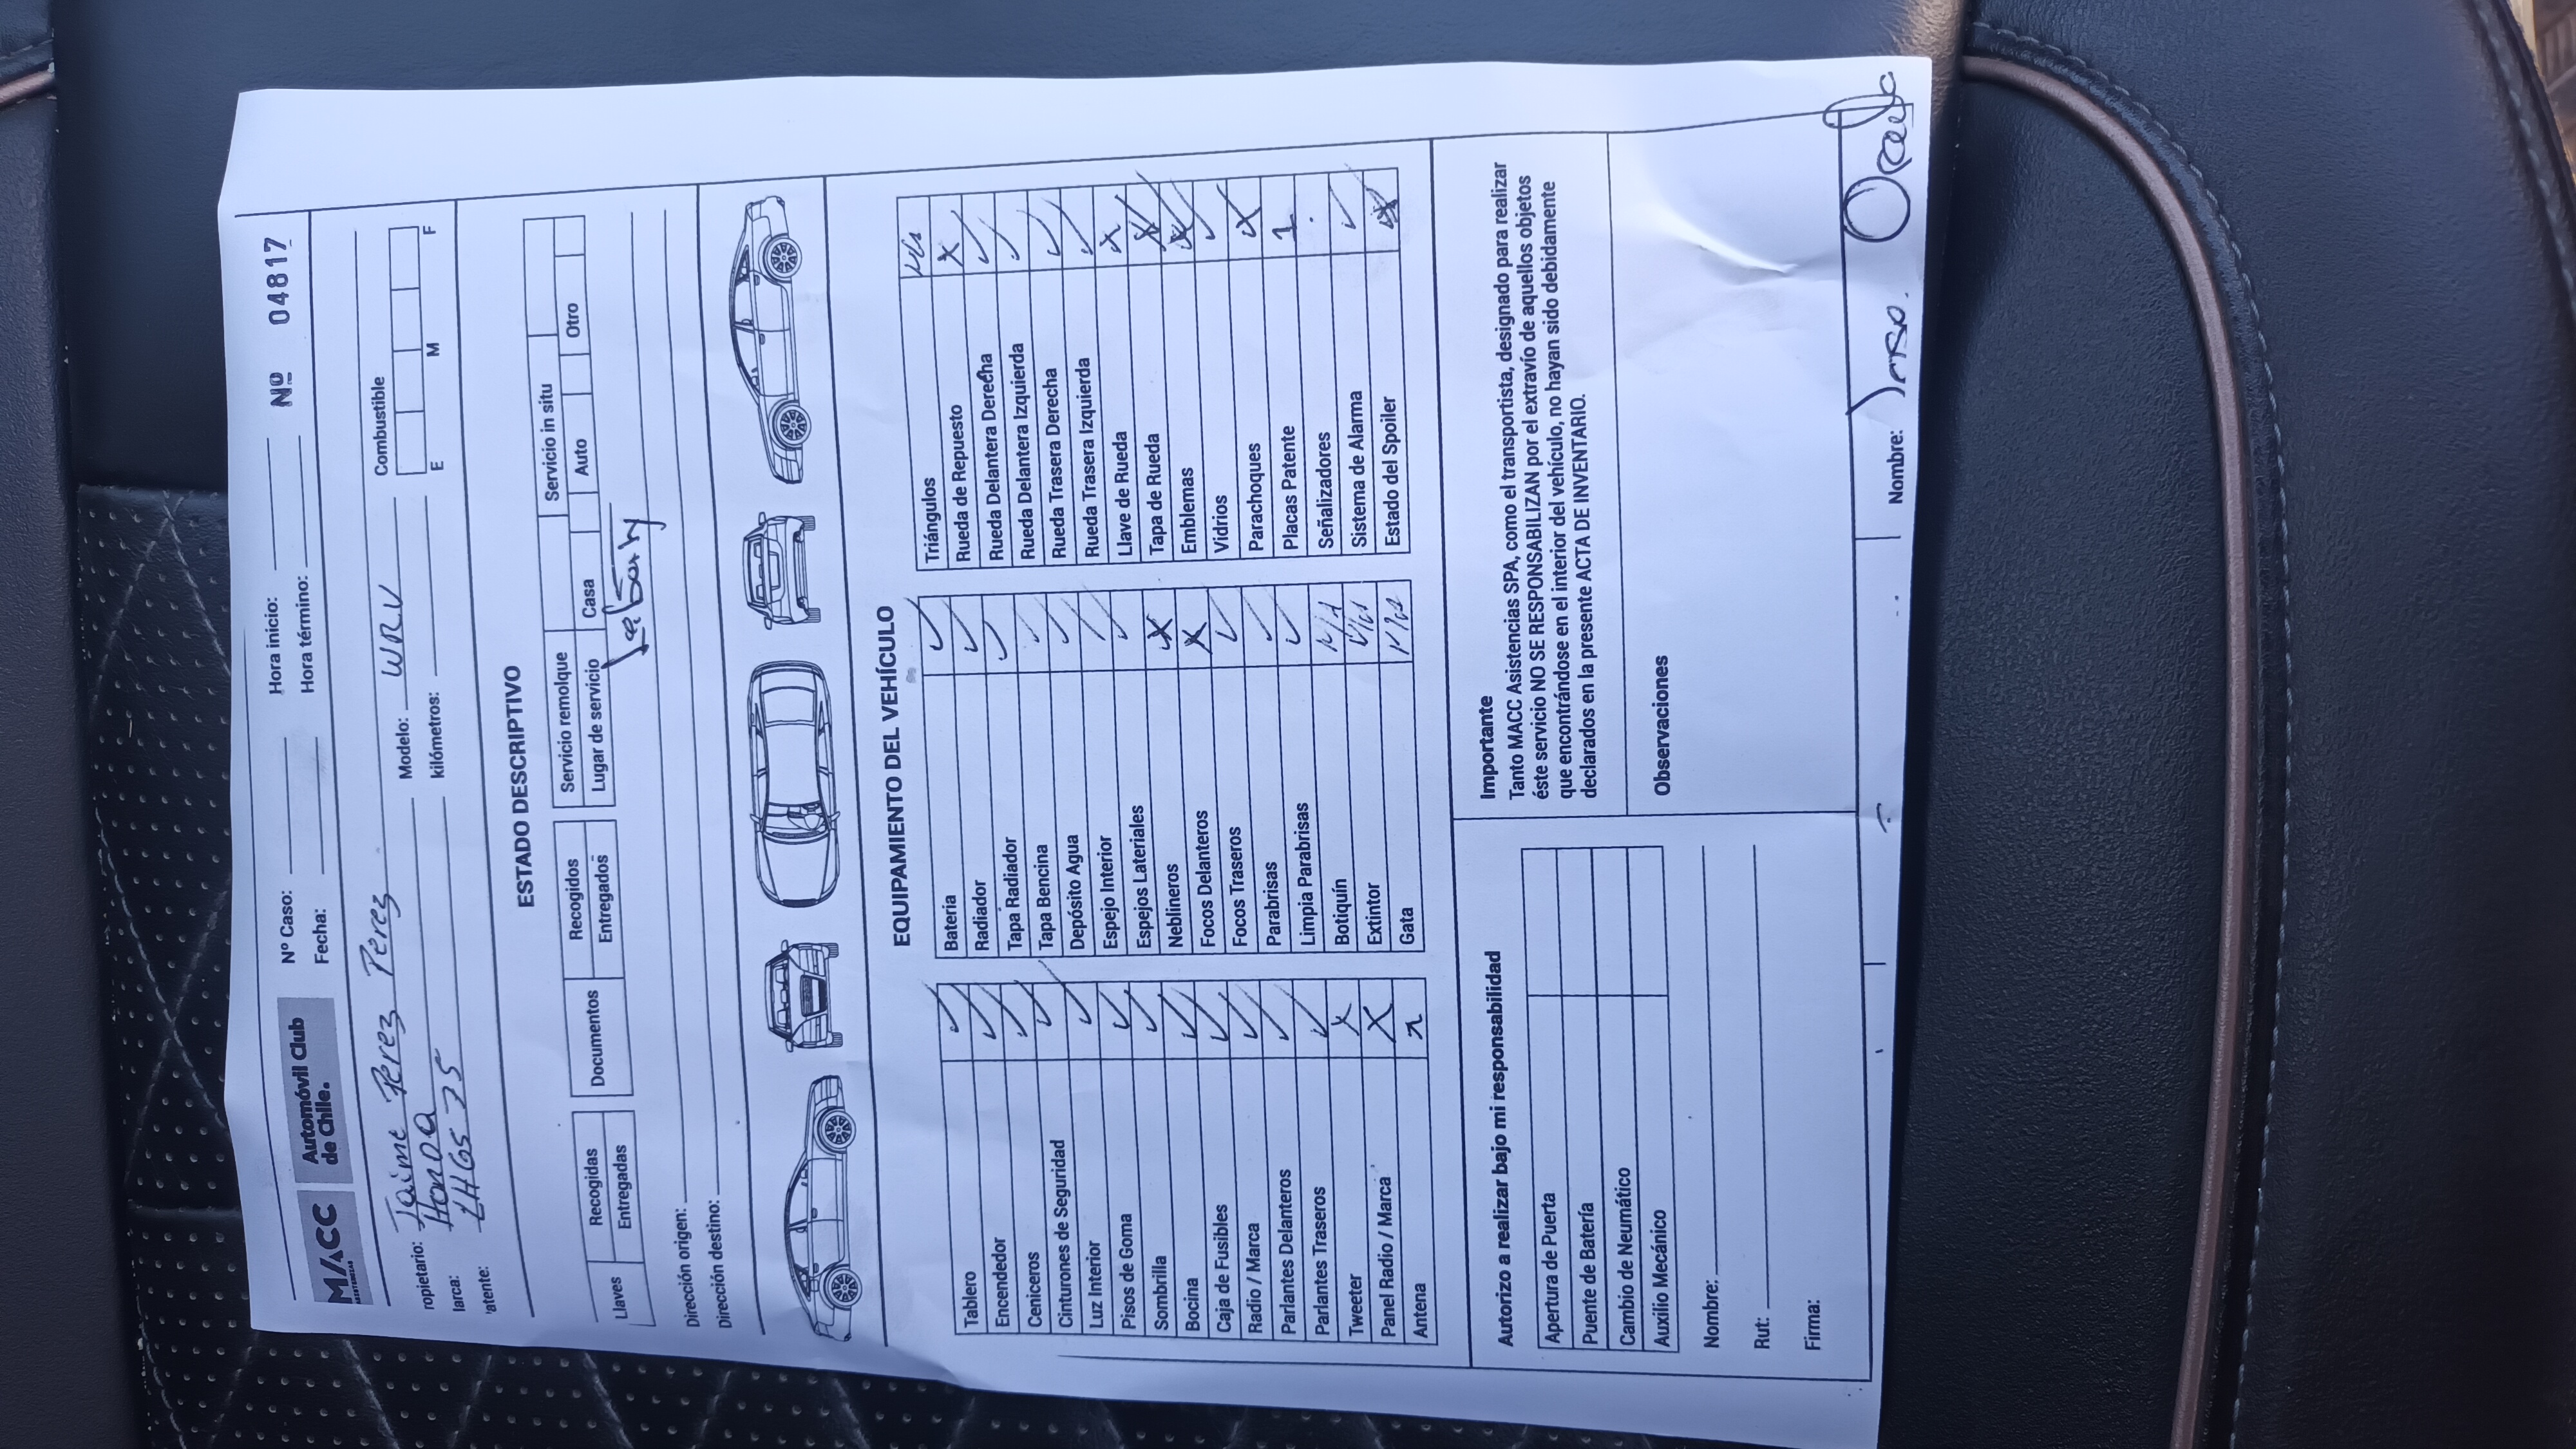 MACC
ASISTENCIAS
Automóvil Club
de Chile.
Nº Caso:
Hora inicio:
Nº 04817
Fecha:
Hora término:
ropietario: Jaime Pérez Pérez
larca: Honda
Modelo: WRV
Combustible
'atente: LHGS 35
kilómetros:
E M F
ESTADO DESCRIPTIVO
Llaves
Recogidas
Entregadas
Documentos
Recogidos
Entregados
Servicio remolque
Servicio in situ
Lugar de servicio
Casa
Auto
Otro
Dirección origen:
Dirección destino:
EQUIPAMIENTO DEL VEHÍCULO
Tablero ✓
Encendedor ✓
Ceniceros ✓
Cinturones de Seguridad ✓
Luz Interior ✓
Pisos de Goma ✓
Sombrilla ✓
Bocina ✓
Caja de Fusibles ✓
Radio / Marca ✓
Parlantes Delanteros ✓
Parlantes Traseros ✓
Tweeter X
Panel Radio / Marca X
Antena
Bateria ✓
Radiador ✓
Tapa Radiador ✓
Tapa Bencina ✓
Depósito Agua ✓
Espejo Interior ✓
Espejos Lateriales ✓
Neblineros X
Focos Delanteros X
Focos Traseros ✓
Parabrisas ✓
Limpia Parabrisas ✓
Botiquín
Extintor
Gata
Triángulos
Rueda de Repuesto X
Rueda Delantera Derecha ✓
Rueda Delantera Izquierda ✓
Rueda Trasera Derecha ✓
Rueda Trasera Izquierda ✓
Llave de Rueda X
Tapa de Rueda
Emblemas
Vidrios ✓
Parachoques X
Placas Patente 1
Señalizadores
Sistema de Alarma ✓
Estado del Spoiler
Autorizo a realizar bajo mi responsabilidad
Apertura de Puerta
Puente de Batería
Cambio de Neumático
Auxilio Mecánico
Nombre:
Rut:
Firma:
Importante
Tanto MACC Asistencias SPA, como el transportista, designado para realizar
éste servicio NO SE RESPONSABILIZAN por el extravío de aquellos objetos
que encontrándose en el interior del vehículo, no hayan sido debidamente
declarados en la presente ACTA DE INVENTARIO.
Observaciones
Nombre: